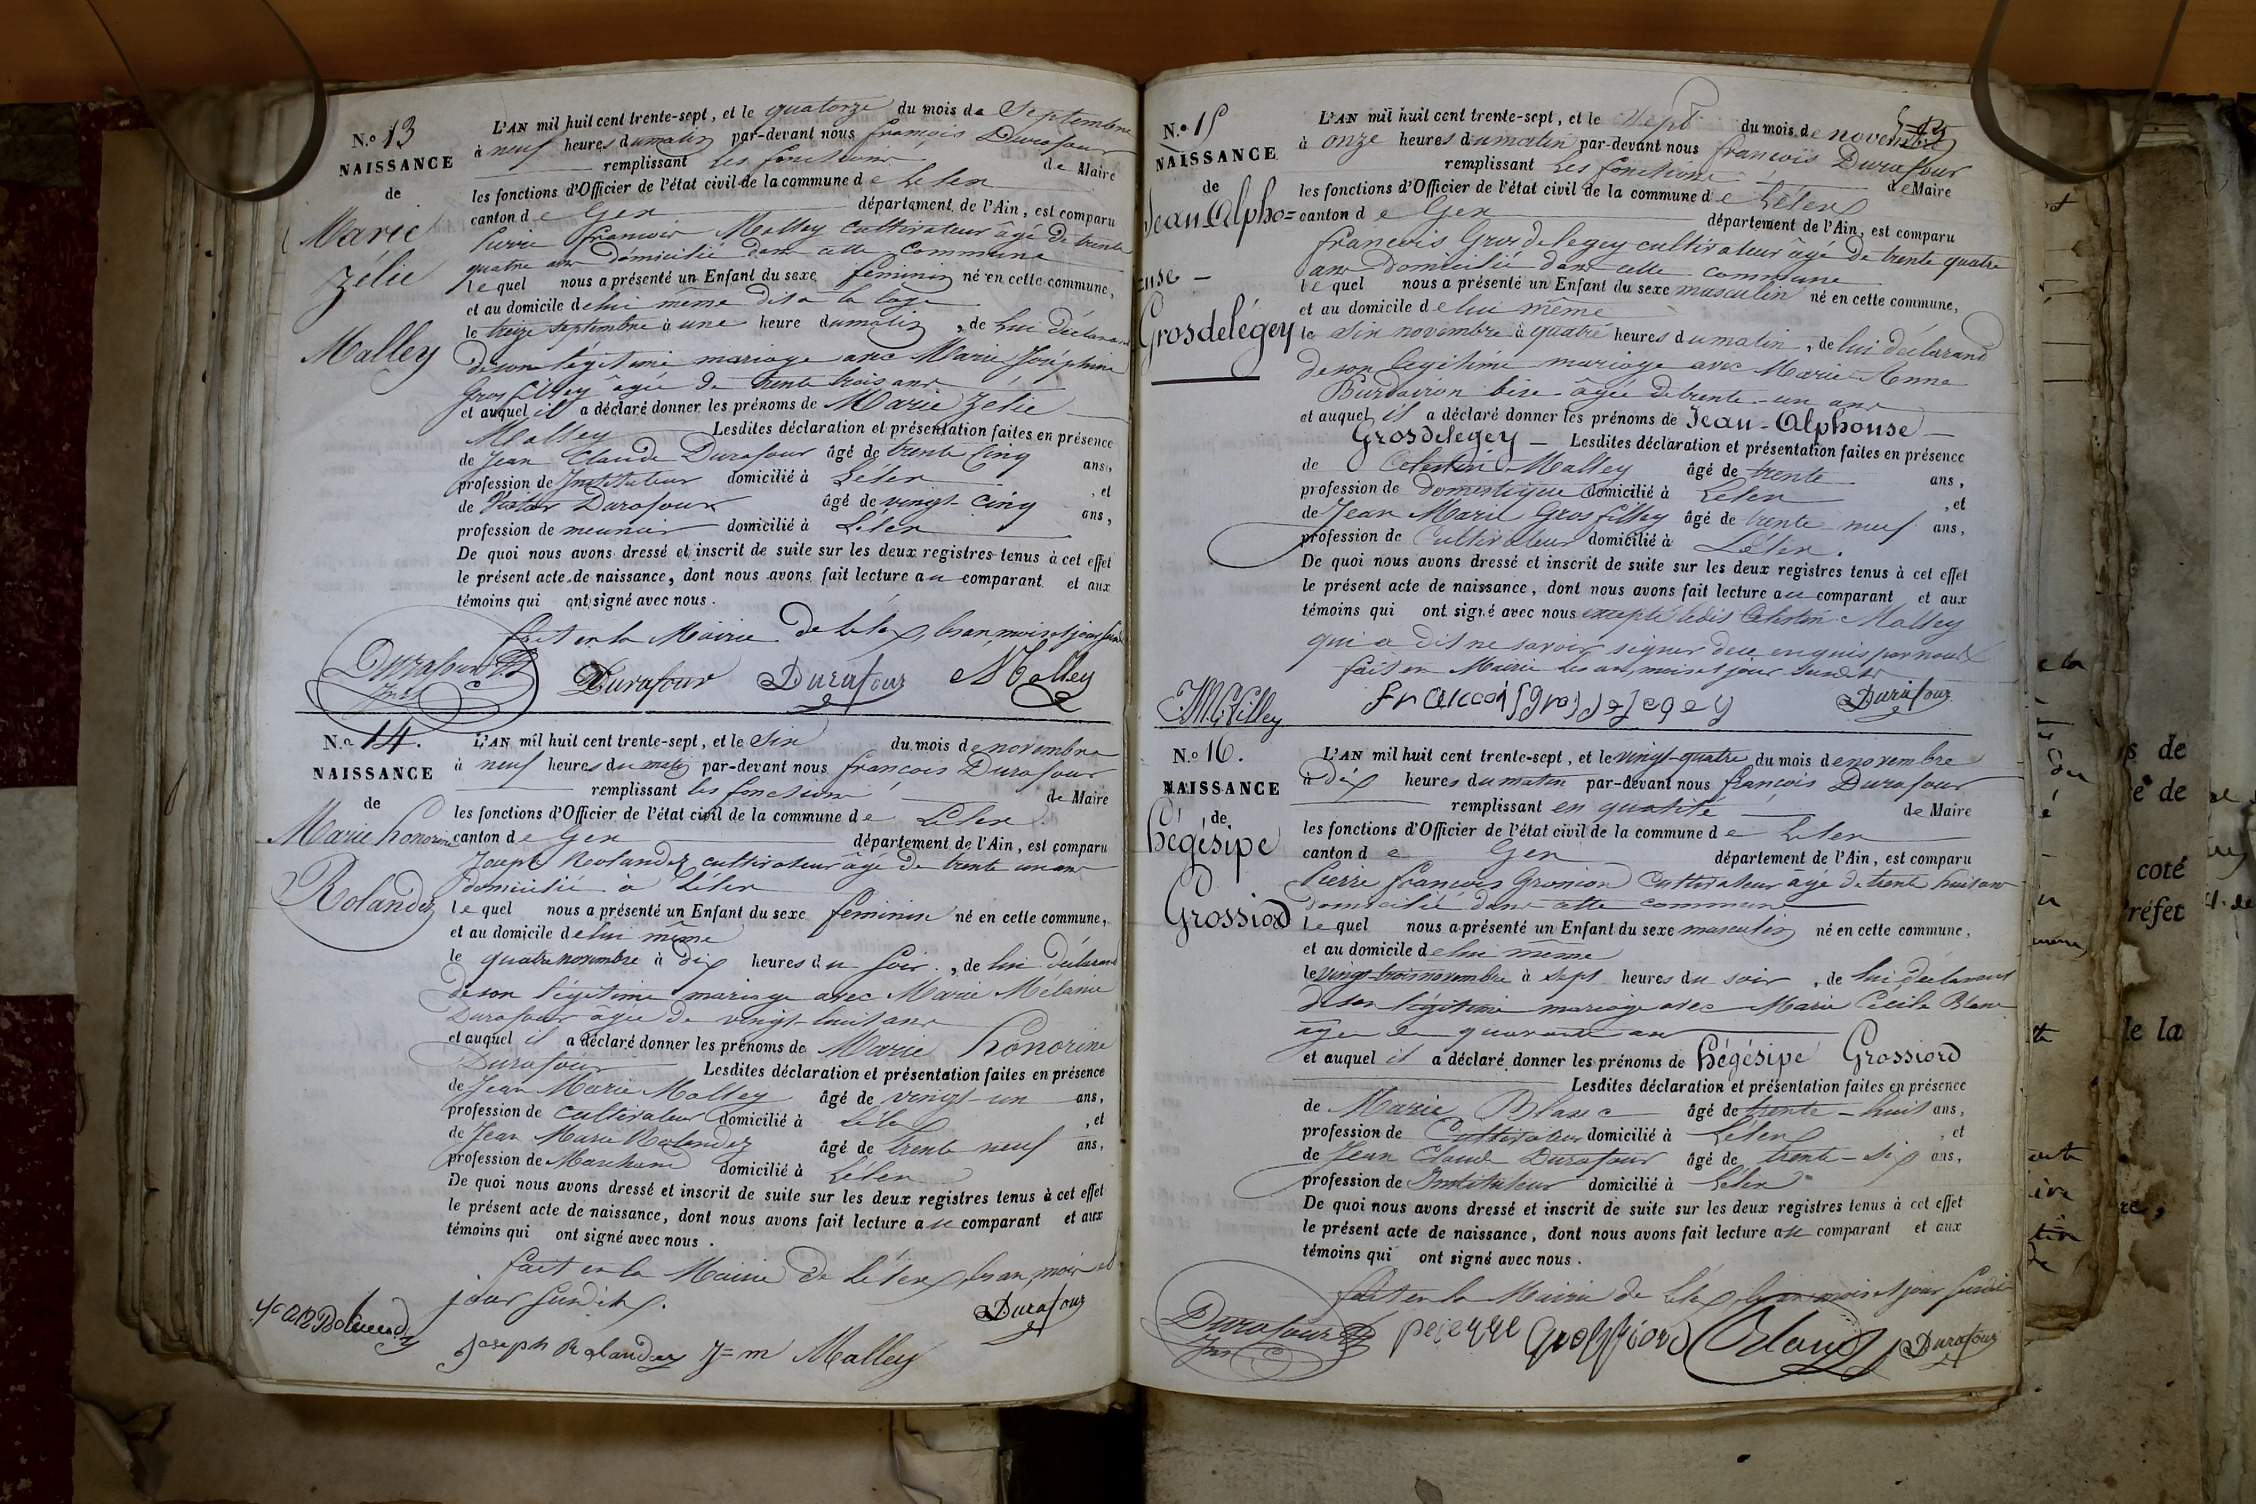 N.° 13
NAISSANCE
de
Marie
Zélie
Malley
L'AN mil huit cent trente-sept, et le quatorze du mois de Septembre
à neuf heures du matin par-devant nous françois Durafour
remplissant les fonctions de Maire
les fonctions d'Officier de l'état civil de la commune de Lélex
canton de Gex département de l'Ain, est comparu
Pierre françois Malley cultivateur âgé de trente
quatre ans domicilié dans cette commune
le quel nous a présenté un Enfant du sexe féminin né en cette commune,
et au domicile de lui même dit à la
le treize septembre à une heure du matin, de lui déclarant
de son légitime mariage avec Marie Joséphine
Gros filley âgée de trente trois ans
et auquel il a déclaré donner les prénoms de Marie Zélie
Malley Lesdites déclaration et présentation faites en présence
de Jean Claude Durafour âgé de trente cinq ans,
profession de Instituteur domicilié à Lélex, et
de Victor Durafour âgé de vingt-cinq ans,
profession de meunier domicilié à Lélex
De quoi nous avons dressé et inscrit de suite sur les deux registres tenus à cet effet
le présent acte de naissance, dont nous avons fait lecture au comparant et aux
témoins qui ont signé avec nous.
fait en la Mairie de Lélex, les an, mois et jour susdits
Durafour Durafour Durafour Malley
N.° 14.
NAISSANCE
de
Marie honorine
Rolandez
L'AN mil huit cent trente-sept, et le Six du mois de novembre
à neuf heures du matin par-devant nous françois Durafour
remplissant les fonctions de Maire
les fonctions d'Officier de l'état civil de la commune de Lélex
canton de Gex département de l'Ain, est comparu
Joseph Rolandez cultivateur âgé de trente un ans
domicilié à Lélex
le quel nous a présenté un Enfant du sexe féminin né en cette commune,
et au domicile de lui même
le quatre novembre à dix heures du soir, de lui déclarant
de son légitime mariage avec Marie Mélanie
Durafour agée de vingt-huit ans
et auquel il a déclaré donner les prénoms de Marie honorine
Durafour Lesdites déclaration et présentation faites en présence
de Jean Marie Malley âgé de vingt-un ans,
profession de cultivateur domicilié à Lélex, et
de Jean Marie Rolandez âgé de trente neuf ans,
profession de Marchand domicilié à Lélex
De quoi nous avons dressé et inscrit de suite sur les deux registres tenus à cet effet
le présent acte de naissance, dont nous avons fait lecture au comparant et aux
témoins qui ont signé avec nous.
fait en la Mairie de Lélex, les an, mois et
jour susdits.
Durafour
joseph Rolandez J=m Malley
N.° 15
NAISSANCE
de
Jean Alpho=
nse
Grosdelégey
L'AN mil huit cent trente-sept, et le Sept du mois de novembre
à onze heures du matin par-devant nous françois Durafour
remplissant les fonctions de Maire
les fonctions d'Officier de l'état civil de la commune de Lélex
canton de Gex département de l'Ain, est comparu
françois Grosdelegey cultivateur âgé de trente quatre
ans domicilié dans cette commune
le quel nous a présenté un Enfant du sexe masculin né en cette commune,
et au domicile de lui même
le Six novembre à quatre heures du matin, de lui déclarand
de son légitime mariage avec Marie Anne
Burdairon bise âgée de trente-un ans
et auquel il a déclaré donner les prénoms de Jean-Alphonse
Grosdelegey Lesdites déclaration et présentation faites en présence
de Celestin Malley âgé de trente ans,
profession de domestique domicilié à Lélex, et
de Jean Marie Gros filley âgé de trente neuf ans,
profession de Cultivateur domicilié à Lélex.
De quoi nous avons dressé et inscrit de suite sur les deux registres tenus à cet effet
le présent acte de naissance, dont nous avons fait lecture au comparant et aux
témoins qui ont signé avec nous excepté ledit Celestin Malley
qui a dit ne savoir signer de ce enquis par nous
fait en Mairie les an, mois et jour susdits
J.M.G.filley francois grosdelegey Durafour
N.° 16.
NAISSANCE
de
hégésipe
Grossiord
L'AN mil huit cent trente-sept, et le vingt-quatre du mois de novembre
à dix heures du matin par-devant nous françois Durafour
remplissant en qualité de Maire
les fonctions d'Officier de l'état civil de la commune de Lélex
canton de Gex département de l'Ain, est comparu
Pierre françois Grossiord Cultivateur âgé de trente huit ans
domicilié dans cette commune
le quel nous a présenté un Enfant du sexe masculin né en cette commune,
et au domicile de lui même
le vingt-trois novembre à sept heures du soir, de lui déclarant
de son légitime mariage avec Marie Cécile Blanc
âgée de quarante ans
et auquel il a déclaré donner les prénoms de hégésipe Grossiord
Lesdites déclaration et présentation faites en présence
de Marie Blanc âgé de trente-huit ans,
profession de Cultivateur domicilié à Lélex, et
de Jean Claude Durafour âgé de trente-six ans,
profession de Instituteur domicilié à Lélex
De quoi nous avons dressé et inscrit de suite sur les deux registres tenus à cet effet
le présent acte de naissance, dont nous avons fait lecture au comparant et aux
témoins qui ont signé avec nous.
fait en la Mairie de Lélex, les an mois et jour susdits
Durafour Durafour
s de
de
coté
réfet
de la